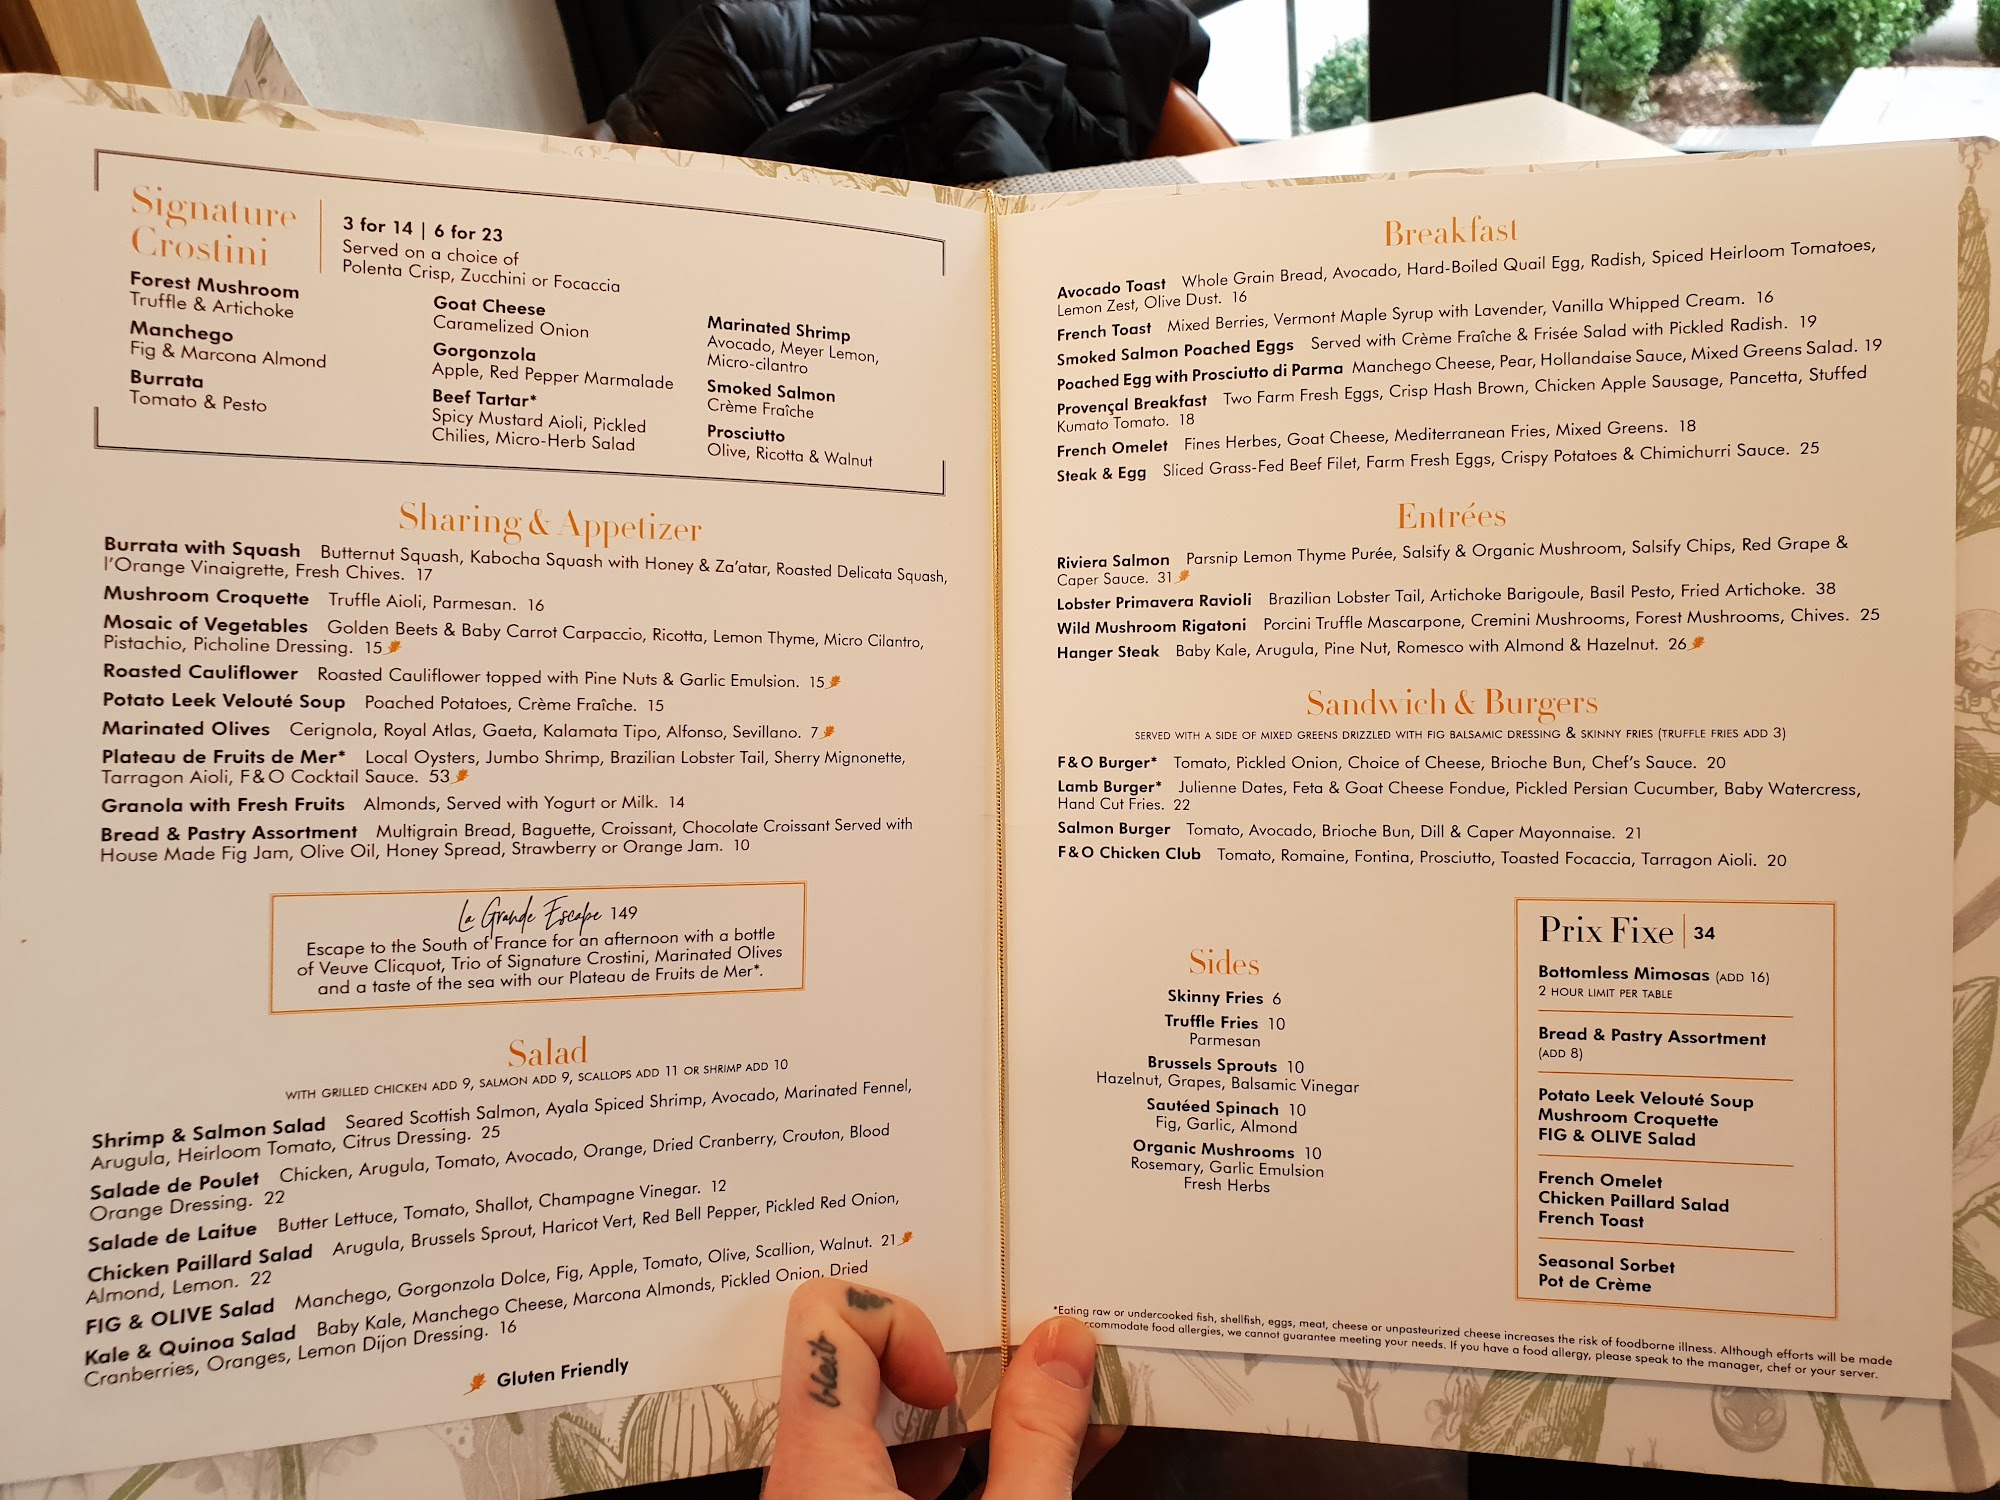 Signature
Crostini
3 for 14 | 6 for 23
Served on a choice of
Polenta Crisp, Zucchini or Focaccia
Forest Mushroom
Truffle & Artichoke
Manchego
Fig & Marcona Almond
Burrata
Tomato & Pesto
Goat Cheese
Caramelized Onion
Gorgonzola
Apple, Red Pepper Marmalade
Beef Tartar*
Spicy Mustard Aioli, Pickled
Chilies, Micro-Herb Salad
Marinated Shrimp
Avocado, Meyer Lemon,
Micro-cilantro
Smoked Salmon
Crème Fraîche
Prosciutto
Olive, Ricotta & Walnut
Sharing & Appetizer
Burrata with Squash Butternut Squash, Kabocha Squash with Honey & Za'atar, Roasted Delicata Squash,
l'Orange Vinaigrette, Fresh Chives. 17
Mushroom Croquette Truffle Aioli, Parmesan. 16
Mosaic of Vegetables Golden Beets & Baby Carrot Carpaccio, Ricotta, Lemon Thyme, Micro Cilantro,
Pistachio, Picholine Dressing. 15
Roasted Cauliflower Roasted Cauliflower topped with Pine Nuts & Garlic Emulsion. 15
Potato Leek Velouté Soup Poached Potatoes, Crème Fraîche. 15
Marinated Olives Cerignola, Royal Atlas, Gaeta, Kalamata Tipo, Alfonso, Sevillano. 7
Plateau de Fruits de Mer* Local Oysters, Jumbo Shrimp, Brazilian Lobster Tail, Sherry Mignonette,
Tarragon Aioli, F&O Cocktail Sauce. 53
Granola with Fresh Fruits Almonds, Served with Yogurt or Milk. 14
Bread & Pastry Assortment Multigrain Bread, Baguette, Croissant, Chocolate Croissant Served with
House Made Fig Jam, Olive Oil, Honey Spread, Strawberry or Orange Jam. 10
La Grande Escape 149
Escape to the South of France for an afternoon with a bottle
of Veuve Clicquot, Trio of Signature Crostini, Marinated Olives
and a taste of the sea with our Plateau de Fruits de Mer*.
Salad
WITH GRILLED CHICKEN ADD 9, SALMON ADD 9, SCALLOPS ADD 11 OR SHRIMP ADD 10
Shrimp & Salmon Salad Seared Scottish Salmon, Ayala Spiced Shrimp, Avocado, Marinated Fennel,
Arugula, Heirloom Tomato, Citrus Dressing. 25
Salade de Poulet Chicken, Arugula, Tomato, Avocado, Orange, Dried Cranberry, Crouton, Blood
Orange Dressing. 22
Salade de Laitue Butter Lettuce, Tomato, Shallot, Champagne Vinegar. 12
Chicken Paillard Salad Arugula, Brussels Sprout, Haricot Vert, Red Bell Pepper, Pickled Red Onion,
Almond, Lemon. 22
FIG & OLIVE Salad Manchego, Gorgonzola Dolce, Fig, Apple, Tomato, Olive, Scallion, Walnut. 21
Kale & Quinoa Salad Baby Kale, Manchego Cheese, Marcona Almonds, Pickled Onion, Dried
Cranberries, Oranges, Lemon Dijon Dressing. 16
Gluten Friendly
Breakfast
Avocado Toast Whole Grain Bread, Avocado, Hard-Boiled Quail Egg, Radish, Spiced Heirloom Tomatoes,
Lemon Zest, Olive Dust. 16
French Toast Mixed Berries, Vermont Maple Syrup with Lavender, Vanilla Whipped Cream. 16
Smoked Salmon Poached Eggs Served with Crème Fraîche & Frisée Salad with Pickled Radish. 19
Poached Egg with Prosciutto di Parma Manchego Cheese, Pear, Hollandaise Sauce, Mixed Greens Salad. 19
Provençal Breakfast Two Farm Fresh Eggs, Crisp Hash Brown, Chicken Apple Sausage, Pancetta, Stuffed
Kumato Tomato. 18
French Omelet Fines Herbes, Goat Cheese, Mediterranean Fries, Mixed Greens. 18
Steak & Egg Sliced Grass-Fed Beef Filet, Farm Fresh Eggs, Crispy Potatoes & Chimichurri Sauce. 25
Entrées
Riviera Salmon Parsnip Lemon Thyme Purée, Salsify & Organic Mushroom, Salsify Chips, Red Grape &
Caper Sauce. 31
Lobster Primavera Ravioli Brazilian Lobster Tail, Artichoke Barigoule, Basil Pesto, Fried Artichoke. 38
Wild Mushroom Rigatoni Porcini Truffle Mascarpone, Cremini Mushrooms, Forest Mushrooms, Chives. 25
Hanger Steak Baby Kale, Arugula, Pine Nut, Romesco with Almond & Hazelnut. 26
Sandwich & Burgers
SERVED WITH A SIDE OF MIXED GREENS DRIZZLED WITH FIG BALSAMIC DRESSING & SKINNY FRIES (TRUFFLE FRIES ADD 3)
F&O Burger* Tomato, Pickled Onion, Choice of Cheese, Brioche Bun, Chef's Sauce. 20
Lamb Burger* Julienne Dates, Feta & Goat Cheese Fondue, Pickled Persian Cucumber, Baby Watercress,
Hand Cut Fries. 22
Salmon Burger Tomato, Avocado, Brioche Bun, Dill & Caper Mayonnaise. 21
F&O Chicken Club Tomato, Romaine, Fontina, Prosciutto, Toasted Focaccia, Tarragon Aioli. 20
Sides
Skinny Fries 6
Truffle Fries 10
Parmesan
Brussels Sprouts 10
Hazelnut, Grapes, Balsamic Vinegar
Sautéed Spinach 10
Fig, Garlic, Almond
Organic Mushrooms 10
Rosemary, Garlic Emulsion
Fresh Herbs
Prix Fixe | 34
Bottomless Mimosas (ADD 16)
2 HOUR LIMIT PER TABLE
Bread & Pastry Assortment
(ADD 8)
Potato Leek Velouté Soup
Mushroom Croquette
FIG & OLIVE Salad
French Omelet
Chicken Paillard Salad
French Toast
Seasonal Sorbet
Pot de Crème
*Eating raw or undercooked fish, shellfish, eggs, meat, cheese or unpasteurized cheese increases the risk of foodborne illness. Although efforts will be made
accommodate food allergies, we cannot guarantee meeting your needs. If you have a food allergy, please speak to the manager, chef or your server.